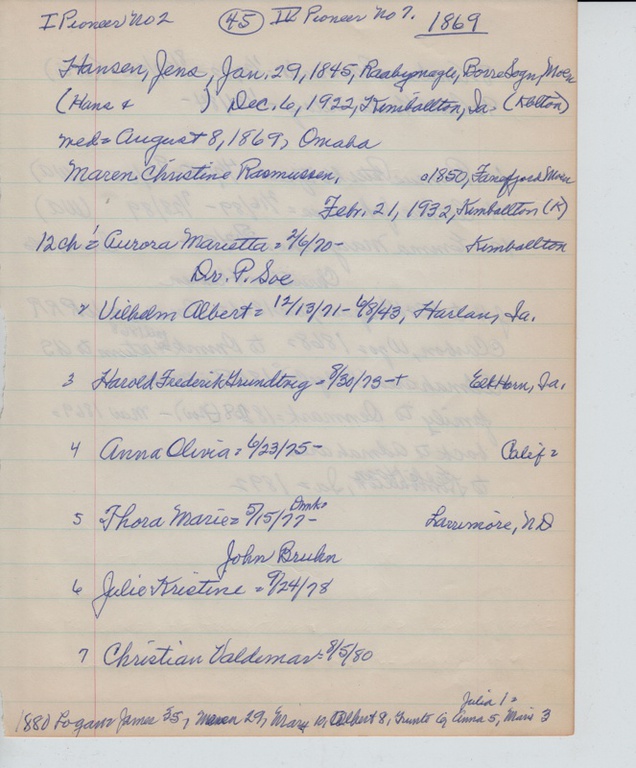 I Pioneer No 2 (45) IV Pioneer No 7. 1869
Hansen, Jens, Jan. 29, 1845, Raabymagle, Borre Sogn, Moen
(Hans & ) Dec. 6, 1922, Kimballton, Ia. (Kblton)
med = August 8, 1869, Omaha
Maren Christine Rasmussen, 1850, Fanefjord Moen
Febr. 21, 1932, Kimballton (K)
12 ch = 1 Aurora Marietta = 2/6/70 - Kimballton
Dr. P. Soe
2 Vilhelm Albert = 12/13/71 - 6/8/43, Harlan, Ia.
3 Harold Frederik Grundtvig = 8/30/73 - + Elk Horn, Ia.
4 Anna Olivia = 6/23/75 - Calif =
5 Thora Marie = 5/15/77 - Larimore, ND
John Bruhn
6 Julie Kristine = 9/24/78
7 Christian Valdemar = 8/5/80
Julia 1 =
1880 Logan = James 35, Maren 29, Mary 10, Albert 8, 6, Anna 5, Marie 3